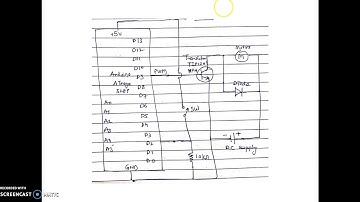 +5V
D13
D12
D11
D10
D9
D8
D7
D6
D5
D4
D3
D2
D1
D0
Arduino
ATmega
A0
A1
A2
A3
A4
A5
GND
PWM
SW
10kΩ
Transistor
TIP120
NPN
Motor
M
Diode
D.C Supply
RECORDED WITH
SCREENCAST MATIC